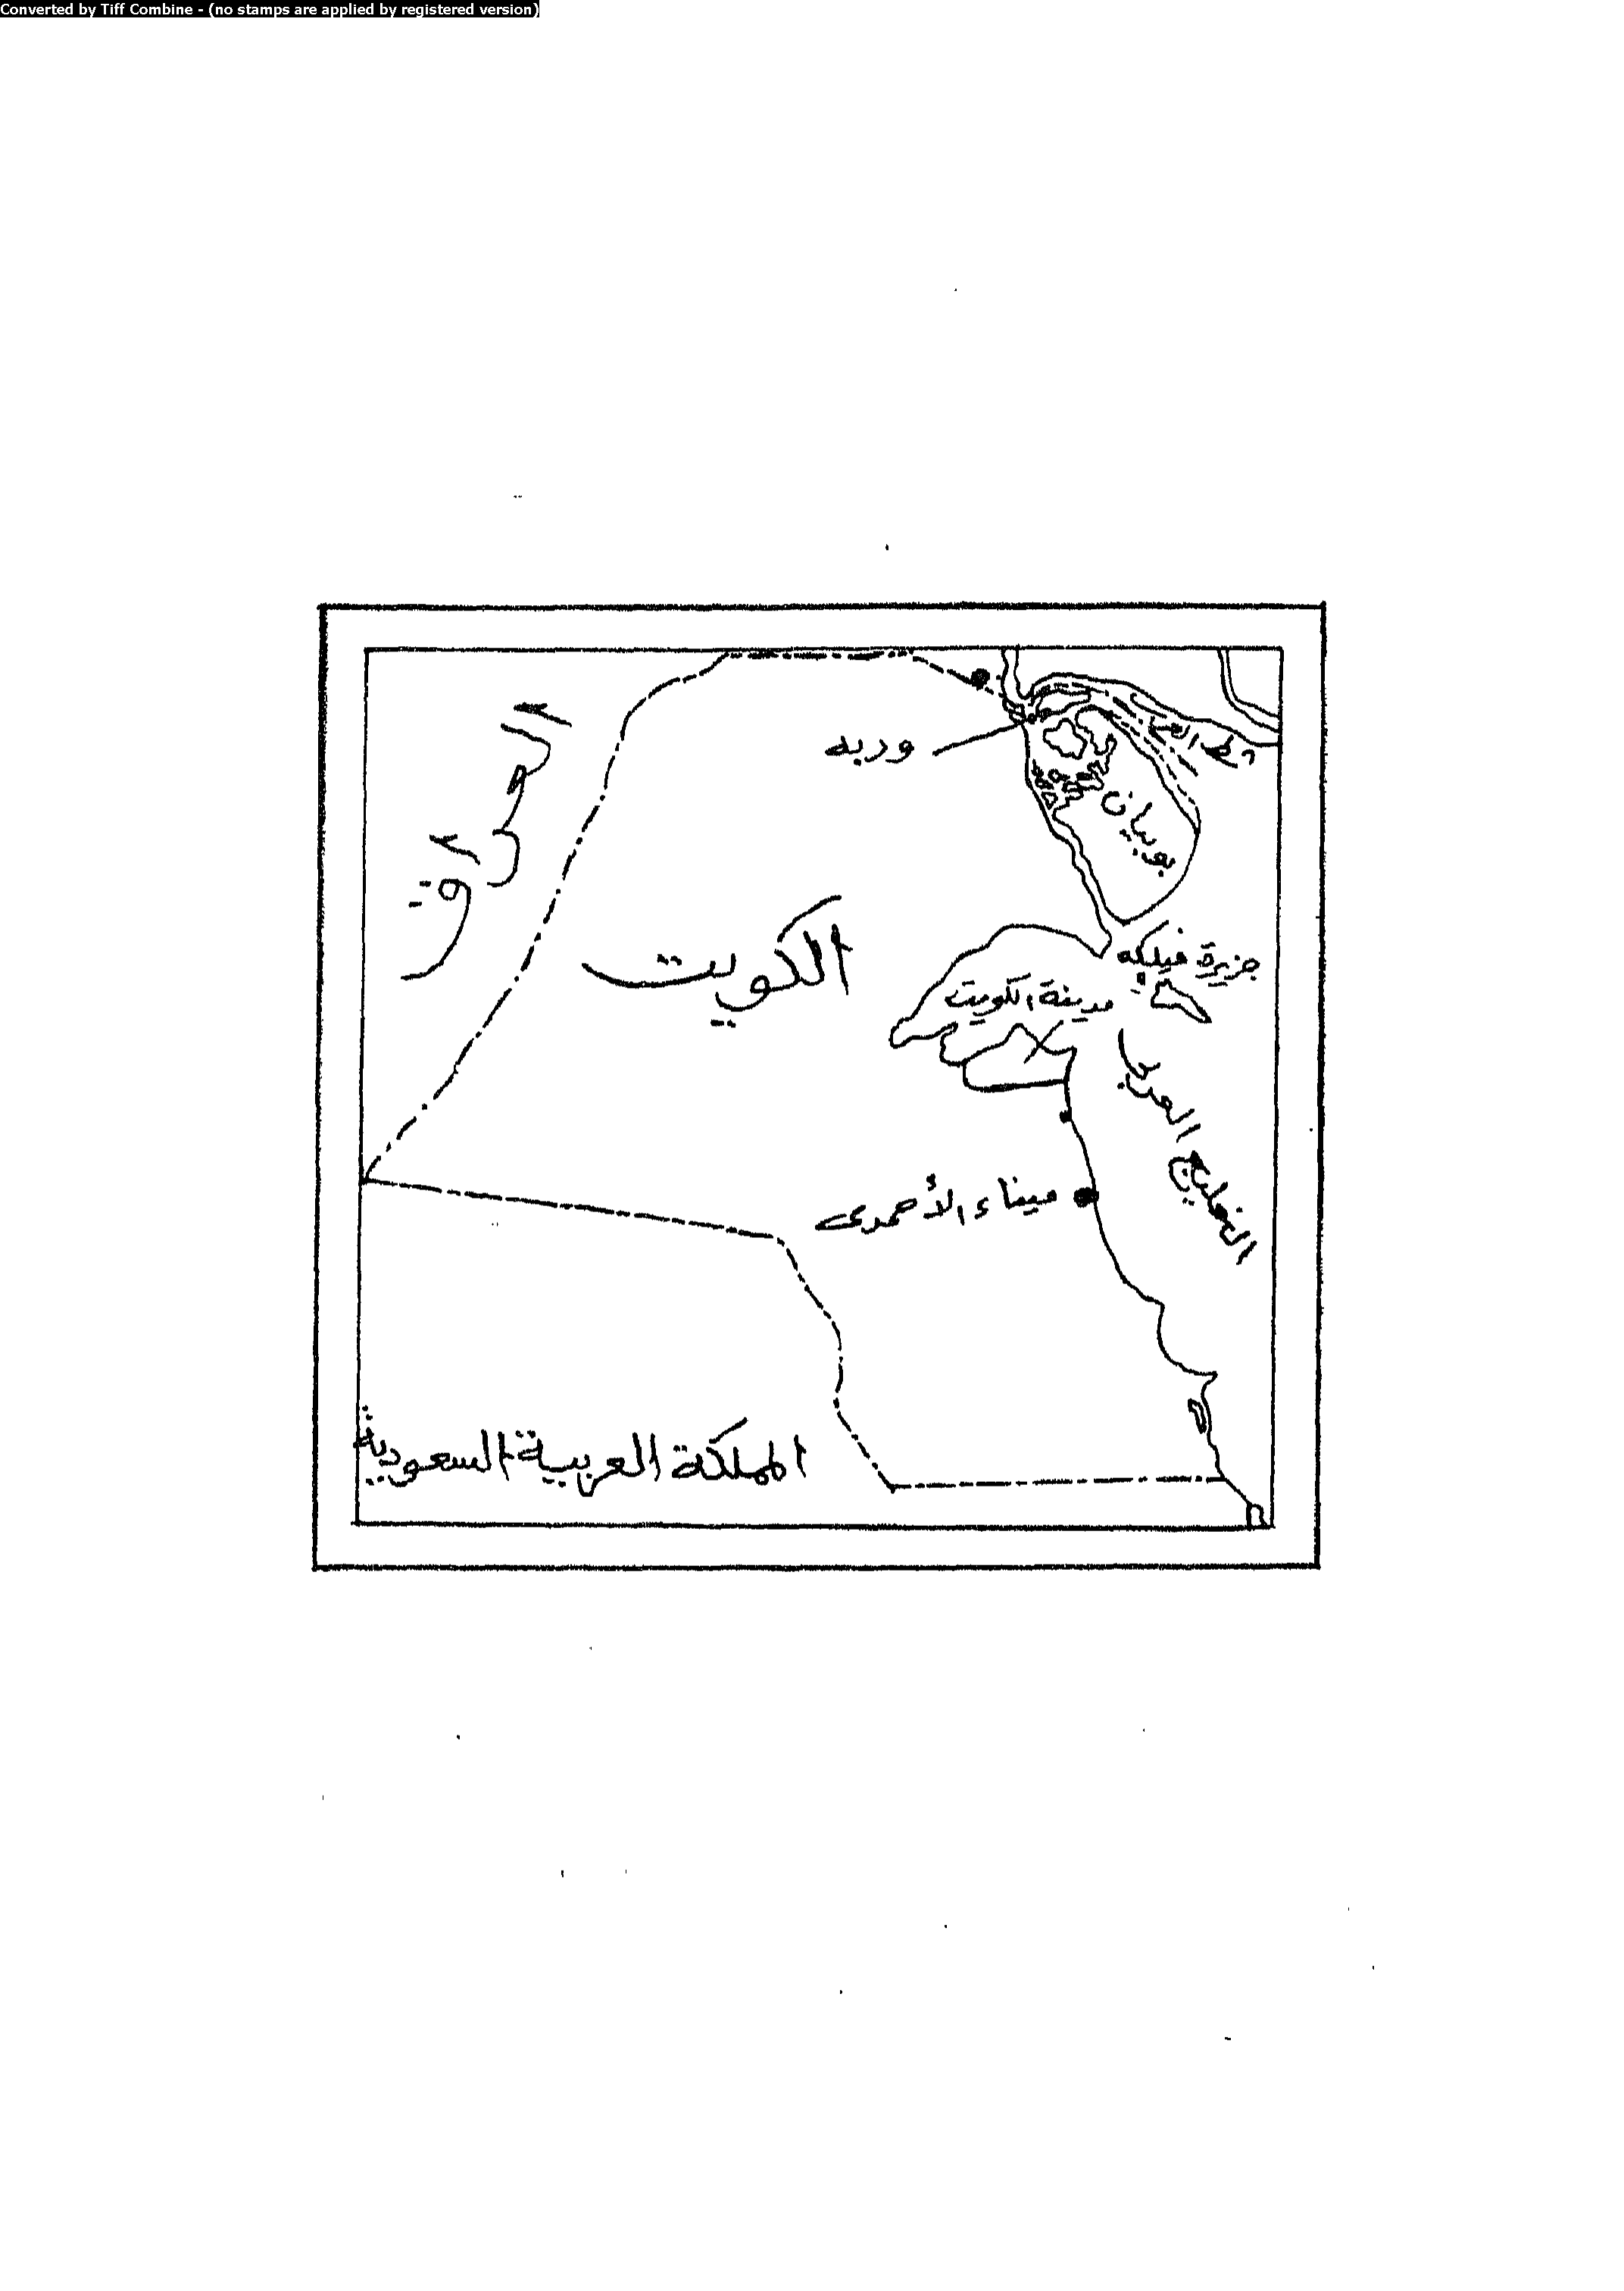 Converted by Tiff Combine - (no stamps are applied by registered version)
العراق
وربه
بوبيان
الكويت
جزيرة فيلكه
مدينة الكويت
الخليج العربي
ميناء الأحمدى
المملكة العربية السعودية